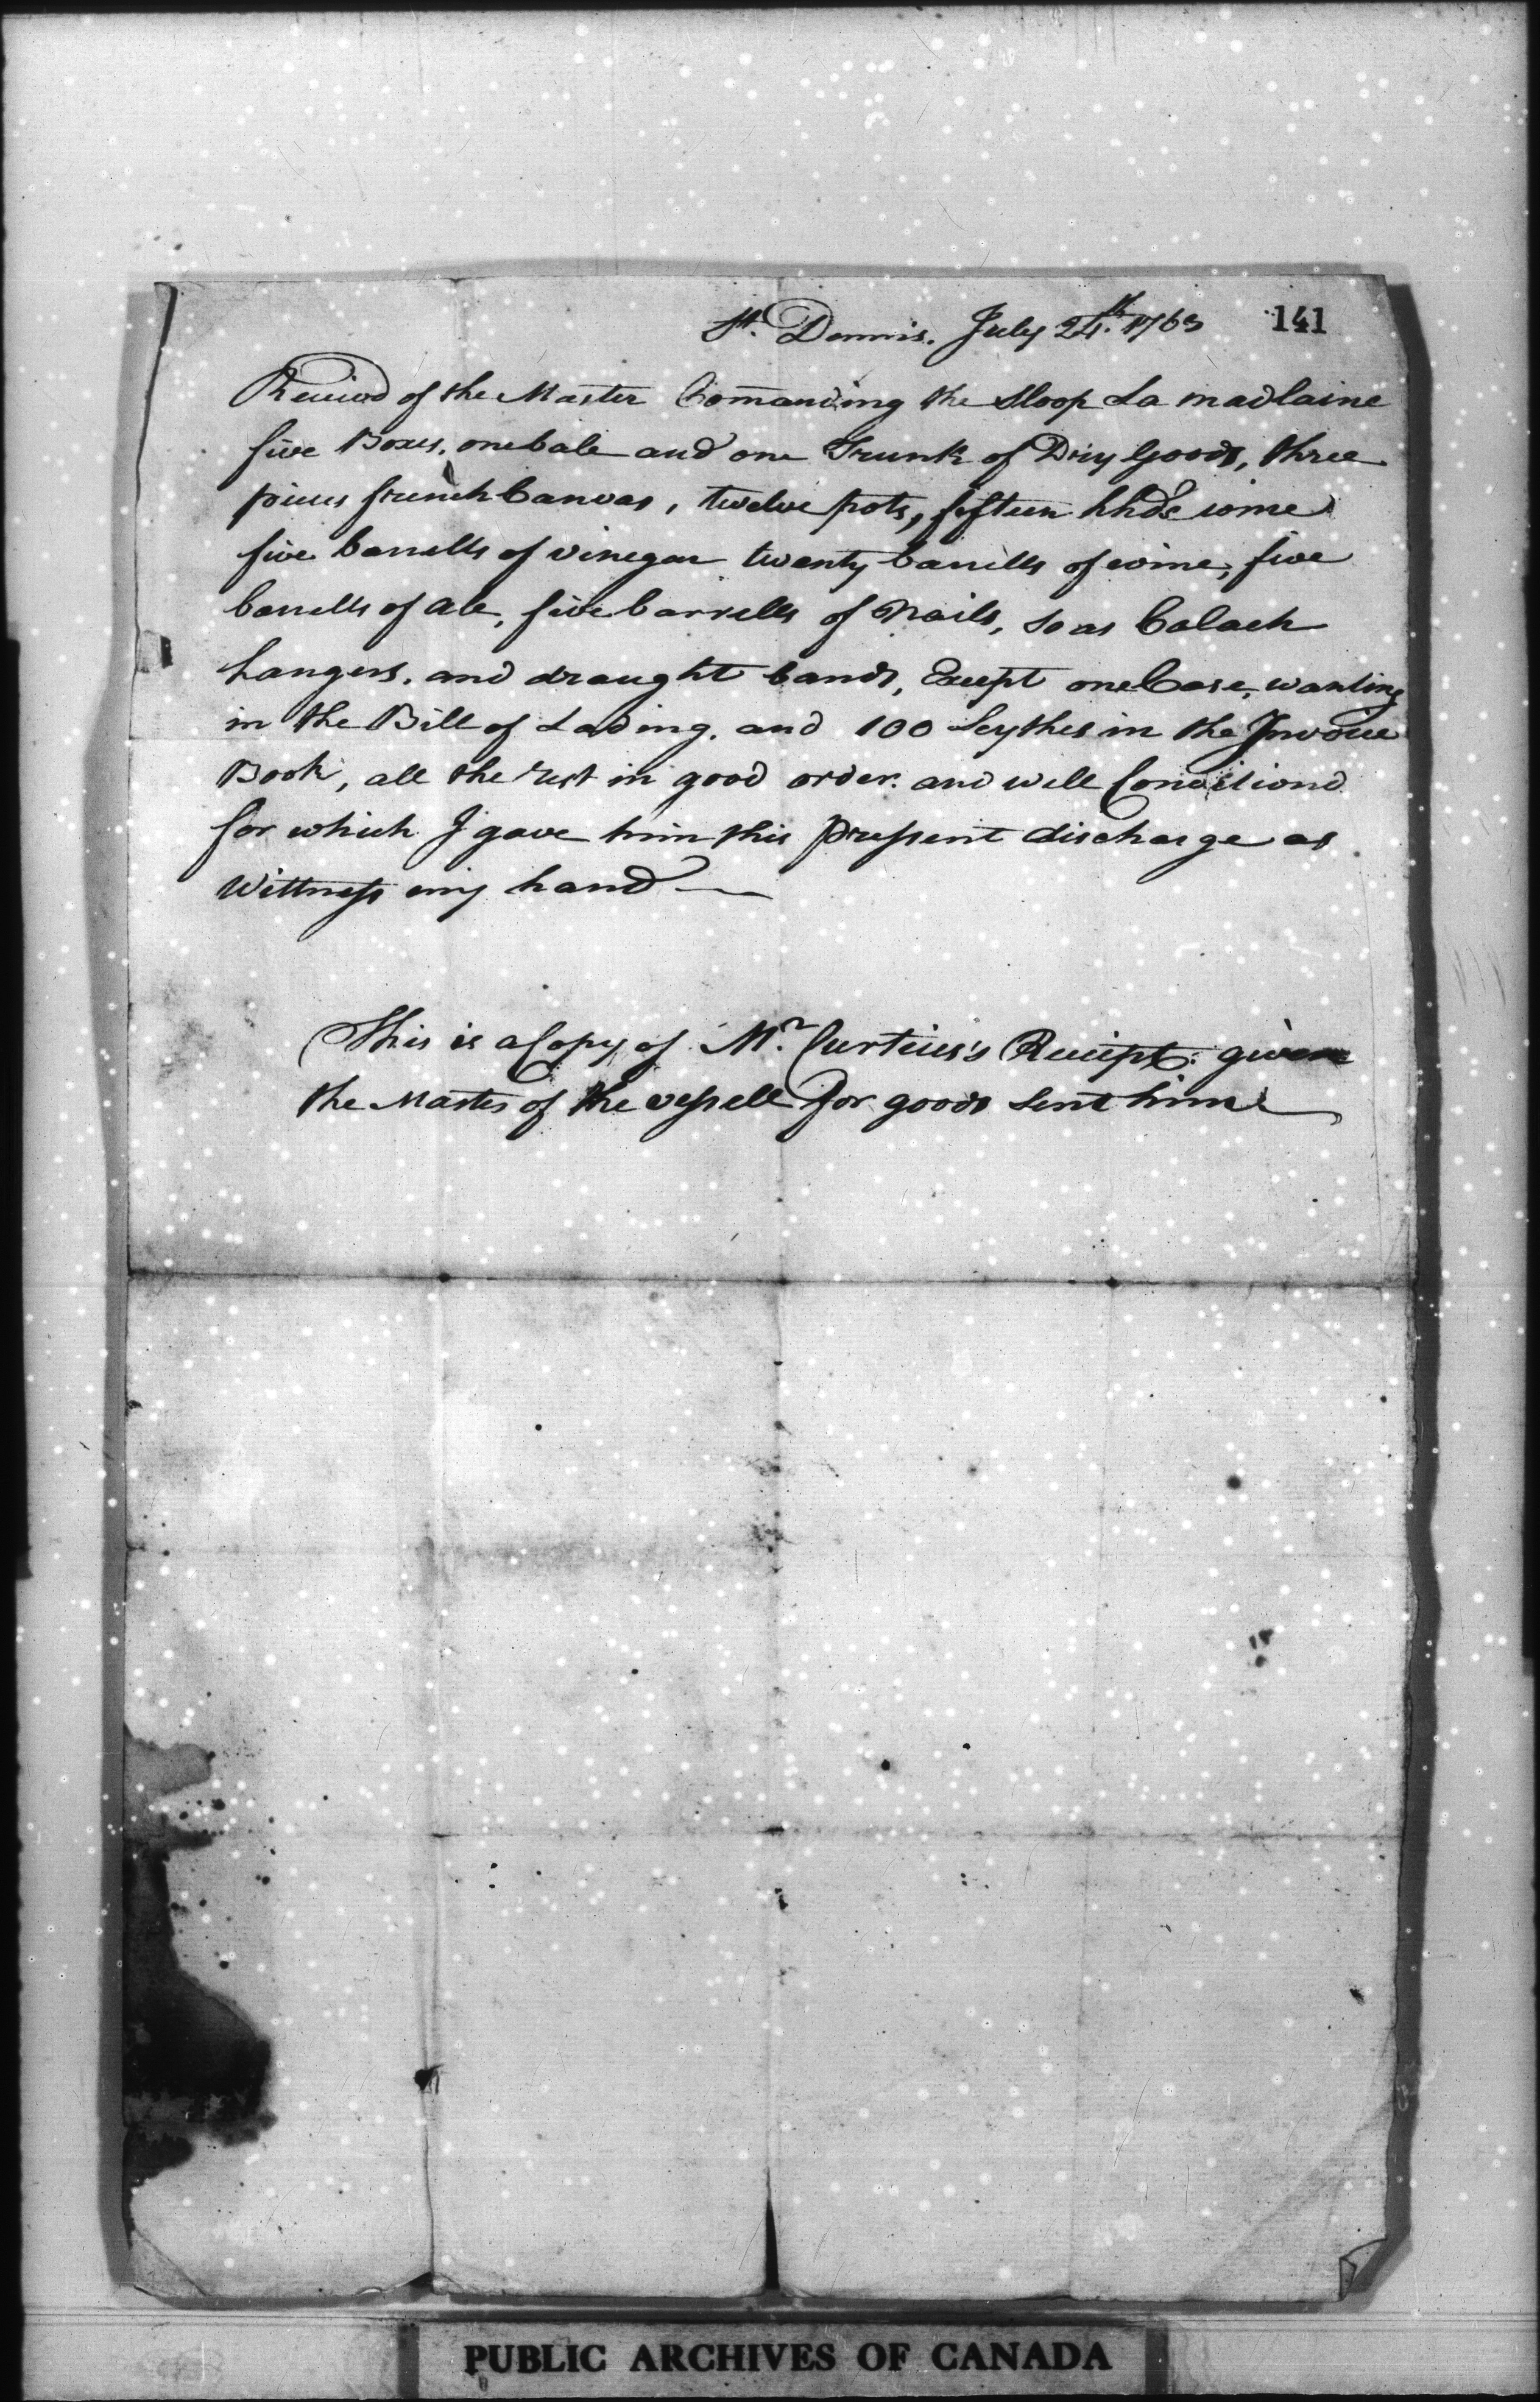 St. Dennis. July 24th. 1763 141
Received of the Master Comanding the Sloop La madlaine
five Boxes, one bale and one Trunk of Dry Goods, three
pieces french Canvas, twelve pots, fifteen hhds wine
five barrells of vinegar twenty barrells of wine, five
barrells of ale, five barrells of Nails, Calach
hangers, and draught bands, Except one Case, wanting
in the Bill of Lading, and 100 Scythes in the Invoice
Book, all the rest in good order and well Conditiond
for which I gave him this pressent discharge as
Wittness my hand
This is a Copy of Mr. Curtius's Receipt given
the Master of the vessell for goods sent him
PUBLIC ARCHIVES OF CANADA